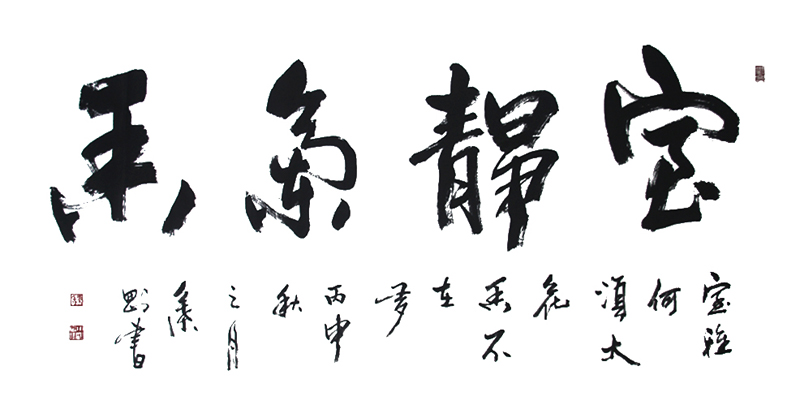 室靜蘭香
室雅
何
須大
花
香不
在
多
丙申
秋
之月
書